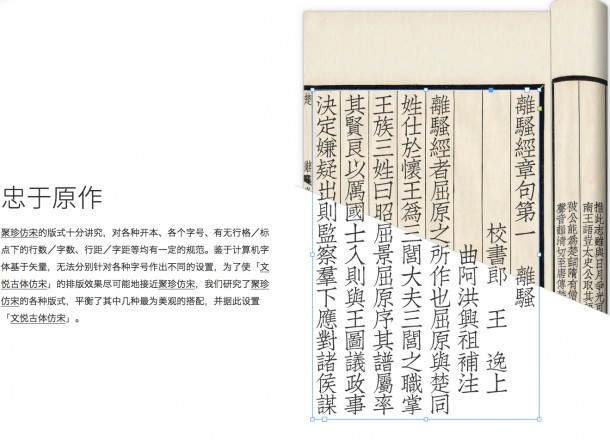 忠于原作
聚珍仿宋的版式十分讲究，对各种开本、各个字号、有无行格／标
点下的行数／字数、行距／字距等均有一定的规范。鉴于计算机字
体基于矢量，无法分别针对各种字号作出不同的设置，为了使「文
悦古体仿宋」的排版效果尽可能地接近聚珍仿宋，我们研究了聚珍
仿宋的各种版式，平衡了其中几种最为美观的搭配，并据此设置
「文悦古体仿宋」。
惟此志雖與日月爭光可
南王語豈太史公取其
被公能爲楚詞隋有僧
聲音韻清切至唐傳
離騷經章句第一　離騷
校書郎　王　逸上
曲阿洪興祖補注
離騷經者屈原之所作也屈原與楚同
姓仕於懷王爲三閭大夫三閭之職掌
王族三姓曰昭屈景屈原序其譜屬率
其賢良以厲國士入則與王圖議政事
決定嫌疑出則監察羣下應對諸侯謀
楚